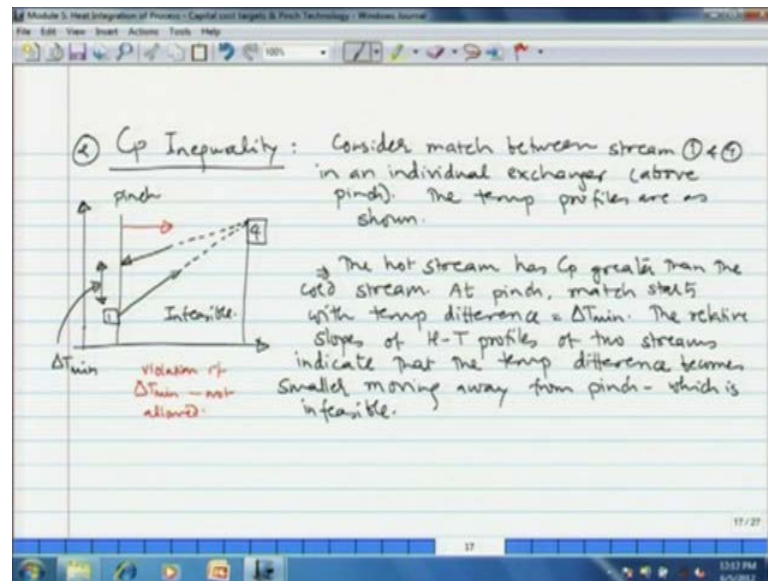 Module 5. Heat Integration of Process - Capital cost targets & Pinch Technology - Windows Journal
File Edit View Insert Actions Tools Help
100%
② Cp Inequality : Consider match between stream ① & ④
in an individual exchanger (above
pinch). The temp profiles are as
shown.
pinch
4
1
Infeasible.
ΔTmin
violation of
ΔTmin – not
allowed.
⇒ The hot stream has Cp greater than the
cold stream. At pinch, match starts
with temp difference = ΔTmin. The relative
slopes of H-T profiles of two streams
indicate that the temp difference becomes
smaller moving away from pinch – which is
infeasible.
17 / 27
17
12:12 PM
6/5/2012